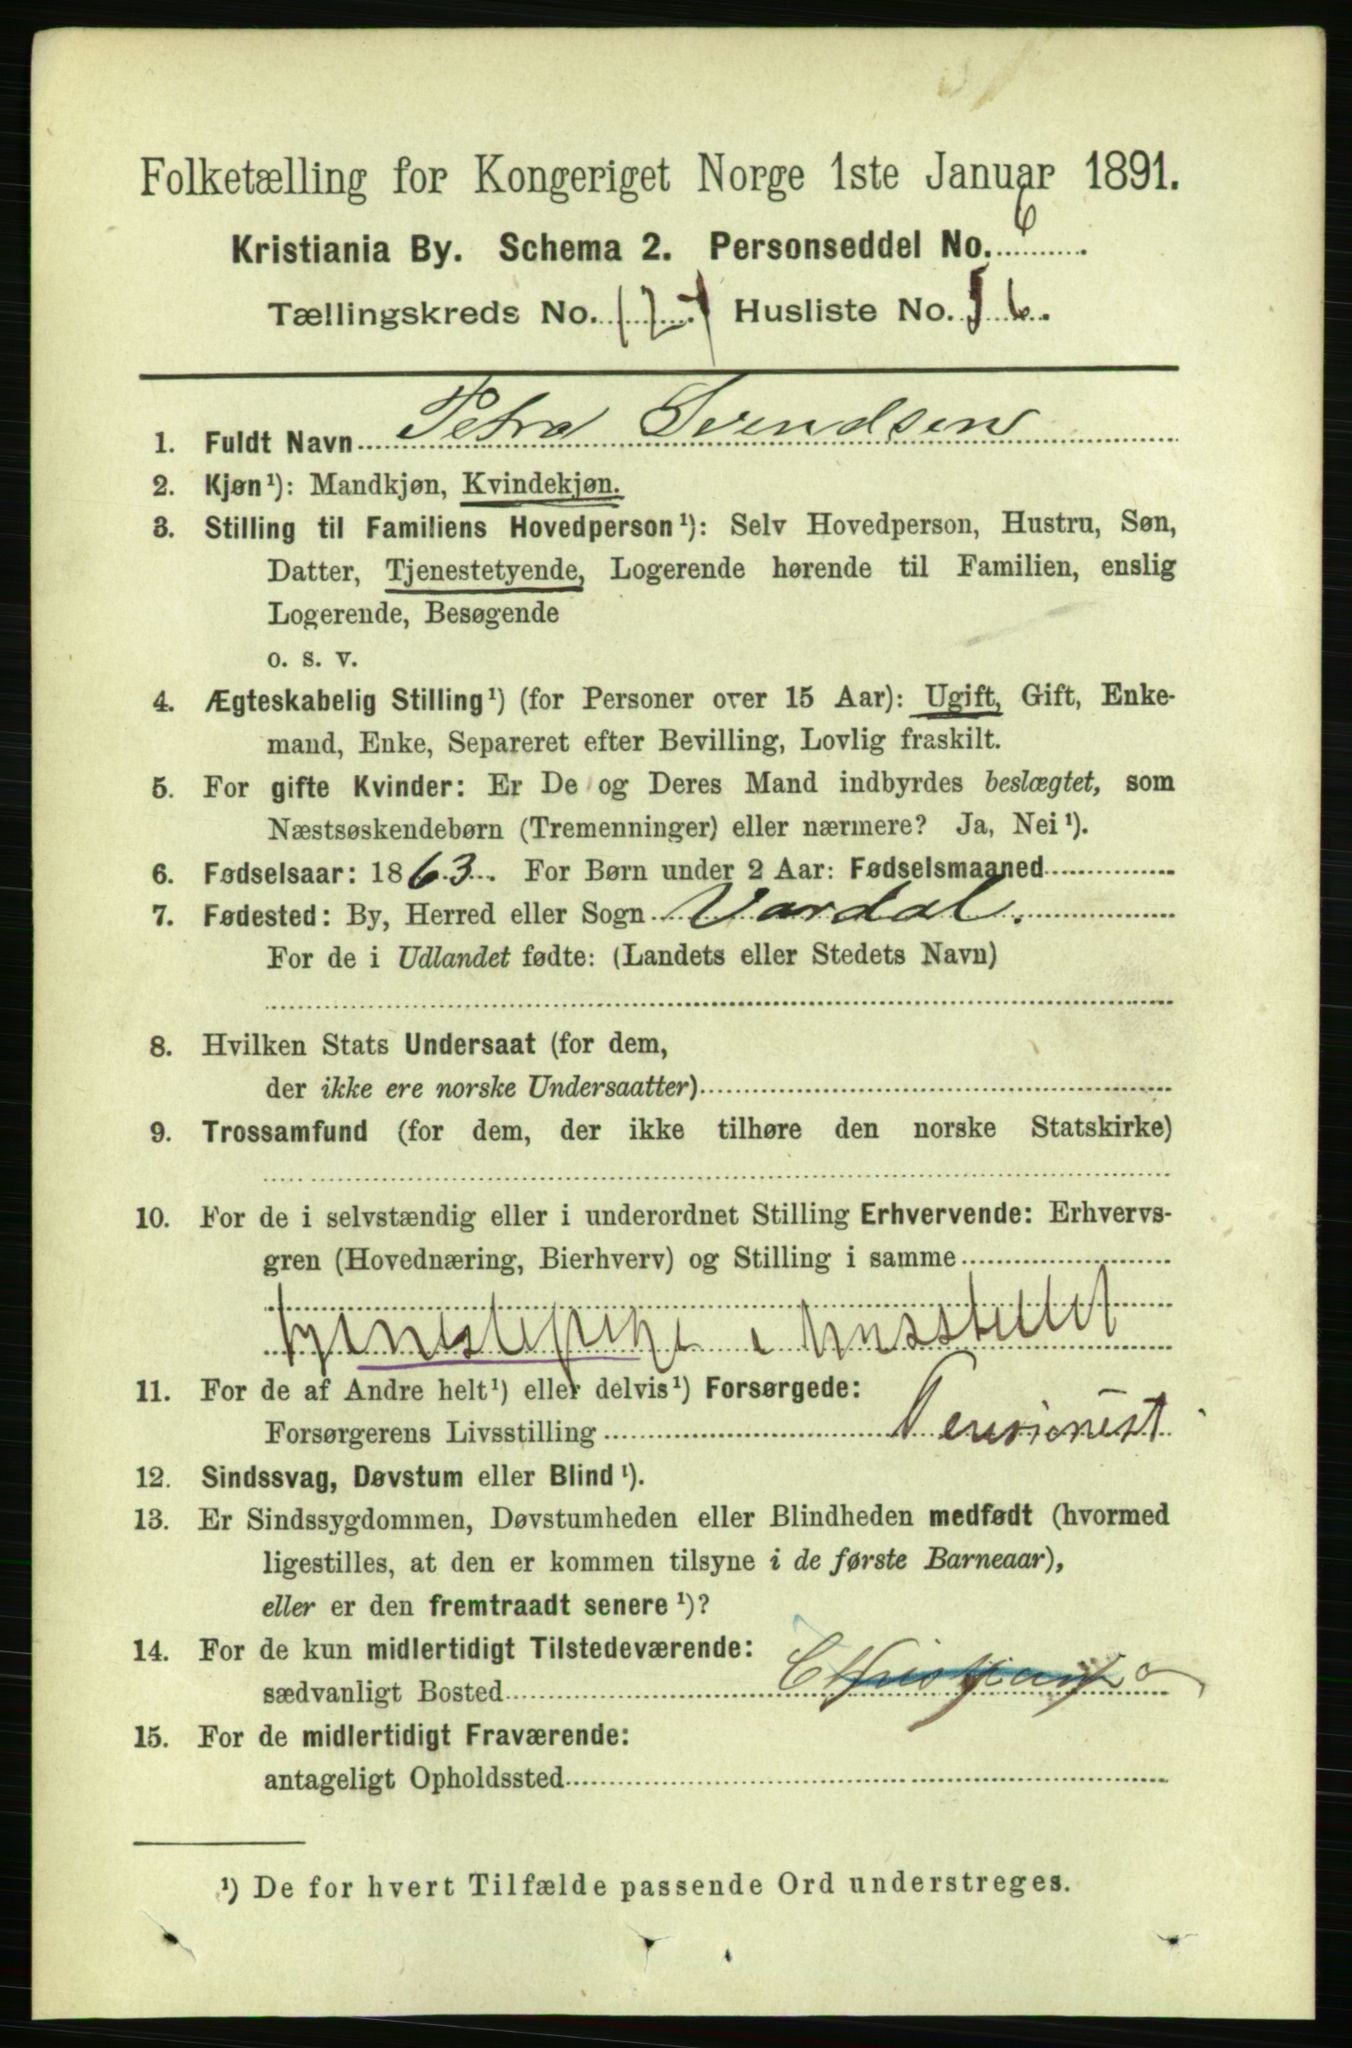 Folketælling for Kongeriget Norge 1ste Januar 1891.
Kristiania By. Schema 2. Personseddel No. 6
Tællingskreds No. 124 Husliste No. 56.
1. Fuldt Navn Petra Svendsen
2. Kjøn¹): Mandkjøn, Kvindekjøn.
3. Stilling til Familiens Hovedperson¹): Selv Hovedperson, Hustru, Søn,
Datter, Tjenestetyende, Logerende hørende til Familien, enslig
Logerende, Besøgende
o. s. v.
4. Ægteskabelig Stilling¹) (for Personer over 15 Aar): Ugift, Gift, Enke-
mand, Enke, Separeret efter Bevilling, Lovlig fraskilt.
5. For gifte Kvinder: Er De og Deres Mand indbyrdes beslægtet, som
Næstsøskendebørn (Tremenninger) eller nærmere? Ja, Nei¹).
6. Fødselsaar: 1863. For Børn under 2 Aar: Fødselsmaaned
7. Fødested: By, Herred eller Sogn Vardal.
For de i Udlandet fødte: (Landets eller Stedets Navn)
8. Hvilken Stats Undersaat (for dem,
der ikke ere norske Undersaatter)
9. Trossamfund (for dem, der ikke tilhøre den norske Statskirke)
10. For de i selvstændig eller i underordnet Stilling Erhvervende: Erhvervs-
gren (Hovednæring, Bierhverv) og Stilling i samme
tjenestepige i husstellet
11. For de af Andre helt¹) eller delvis¹) Forsørgede:
Forsørgerens Livsstilling Pensionist
12. Sindssvag, Døvstum eller Blind¹).
13. Er Sindssygdommen, Døvstumheden eller Blindheden medfødt (hvormed
ligestilles, at den er kommen tilsyne i de første Barneaar),
eller er den fremtraadt senere¹)?
14. For de kun midlertidigt Tilstedeværende:
sædvanligt Bosted Christiania
15. For de midlertidigt Fraværende:
antageligt Opholdssted
¹) De for hvert Tilfælde passende Ord understreges.